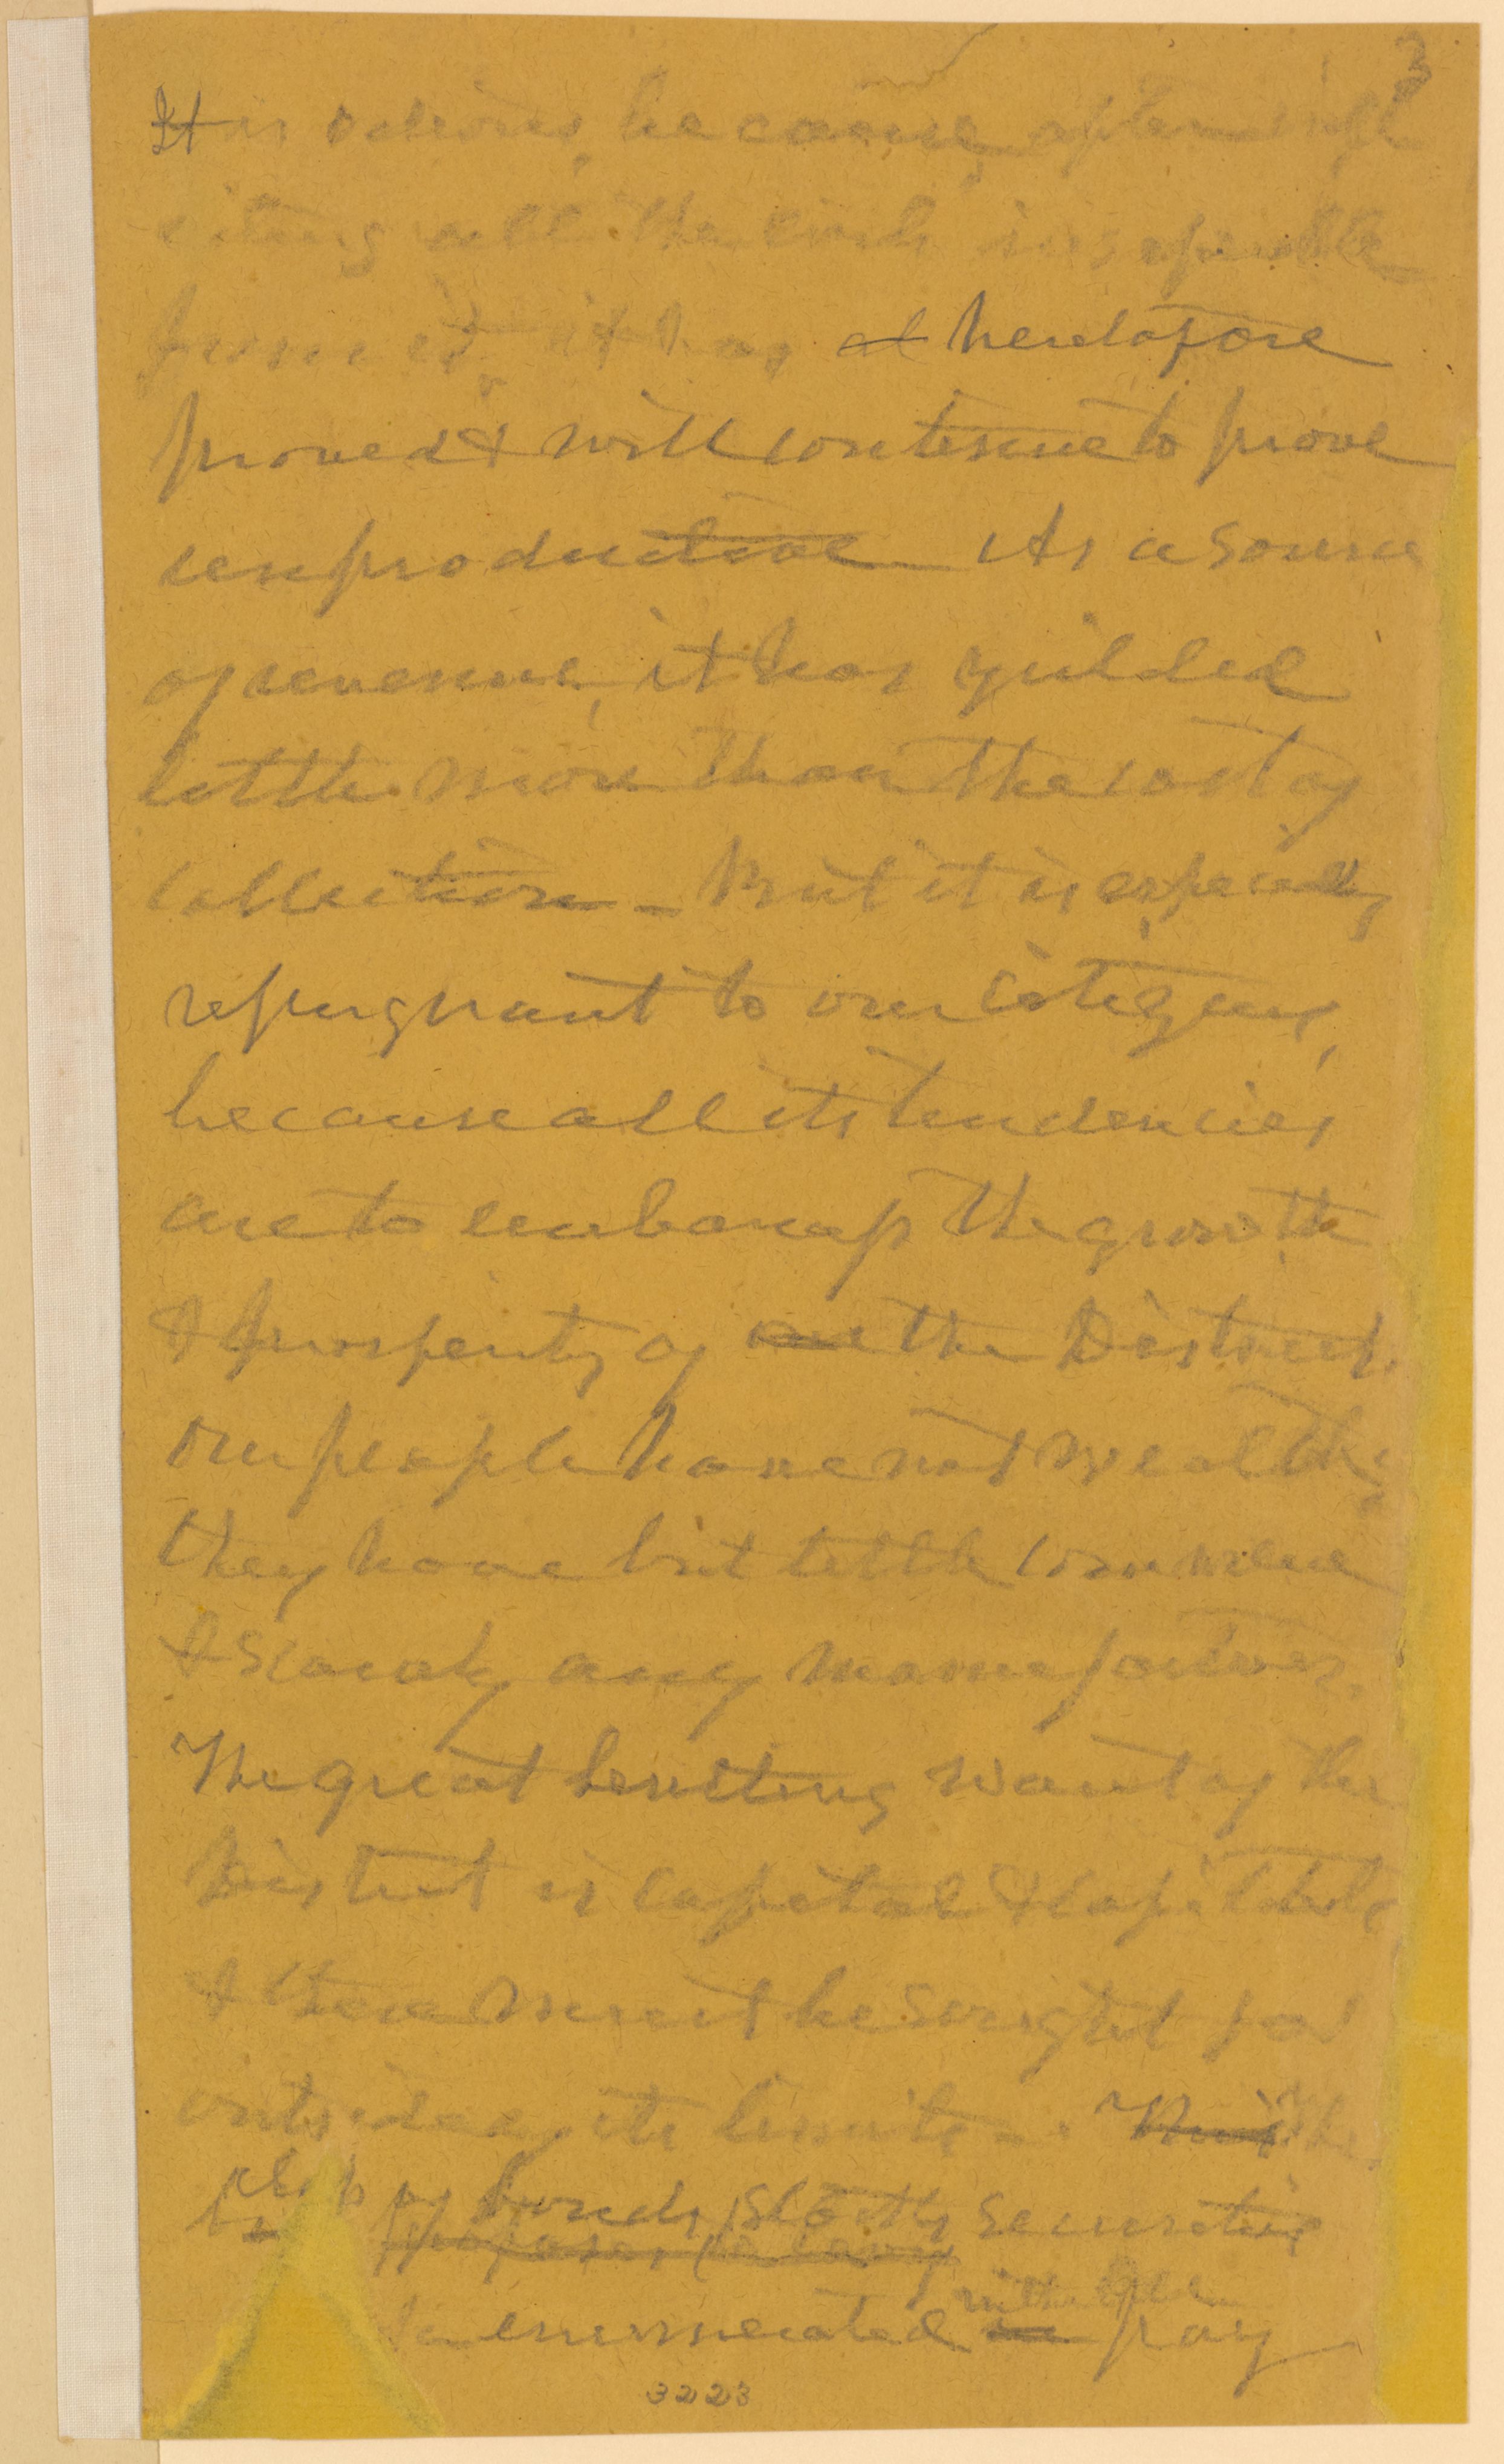 3
It is odious, because, after inflicting
all the evils inseparable
from it, it has at heretofore
proved & will continue to prove
unproductive As a source
of revenue, it has yielded
little more than the cost of
collection - But it is especially
repugnant to our citizens,
because all its tendencies
are to embarrass the growth
& prosperity of our the District.
Our people have not wealth;
they have but little commerce
& scarcely any manufactures.
The great want of the
District is capital & capitalists
& these must be sought for
outside of its limits - This The
of bonds, stocks, securities
proposes to levy
with
enumerated pay
3223